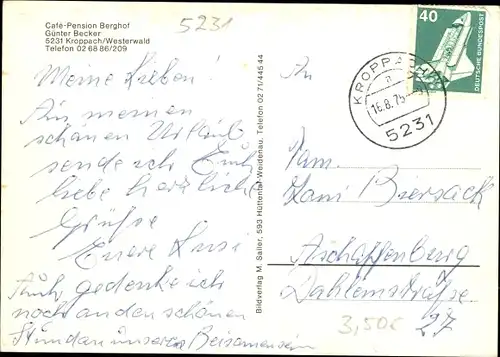 Café-Pension Berghof
Günter Becker
5231 Kroppach/Westerwald
Telefon 02 68 86/209
5231
Meine Lieben!
Aus meinem
schönen Urlaub
sende ich Euch
liebe herzliche
Grüße
Euere Susi
Auch gedenke ich
noch an den schönen
Stunden unseren Beisammensein
Bildverlag M. Sailer, 593 Hüttental-Weidenau, Telefon 02 71/445 44
An
40
DEUTSCHE BUNDESPOST
KROPPACH
16.8.75
5231
Fam.
Biersack
Aschaffenburg
Dahlemstraße
27
3,50€